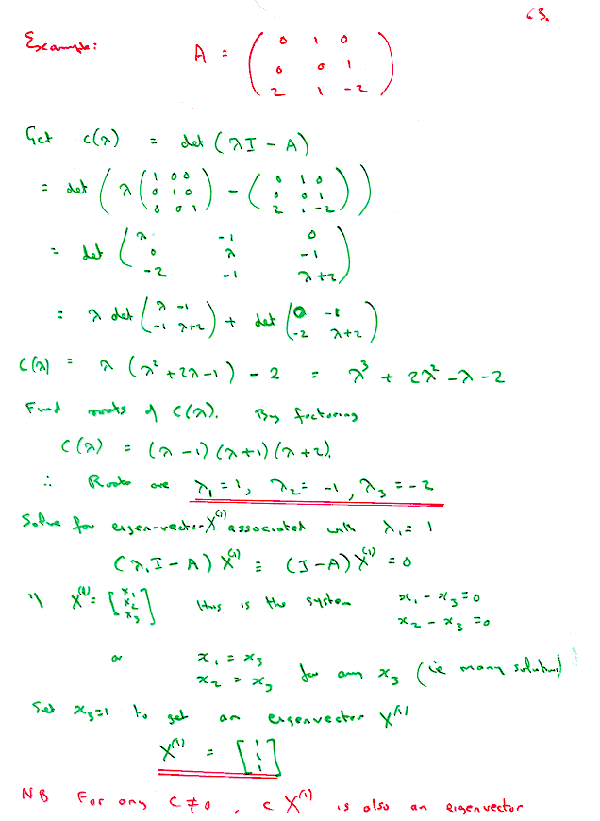 63.
Example: A = ( 0 1 0
0 0 1
2 1 -2 )
Get c(λ) = det (λI - A)
= det ( λ ( 1 0 0
0 1 0
0 0 1 ) - ( 0 1 0
0 0 1
2 1 -2 ) )
= det ( λ -1 0
0 λ -1
-2 -1 λ+2 )
= λ det ( λ -1
-1 λ+2 ) + det ( 0 -1
-2 λ+2 )
C(λ) = λ (λ² + 2λ - 1) - 2 = λ³ + 2λ² - λ - 2
Find roots of C(λ). By factoring
C(λ) = (λ-1)(λ+1)(λ+2).
∴ Roots are λ₁ = 1, λ₂ = -1, λ₃ = -2
Solve for eigen-vector X⁽¹⁾ associated with λ₁ = 1
(λ₁I - A) X⁽¹⁾ = (I - A) X⁽¹⁾ = 0
If X⁽¹⁾ = [ x₁
x₂
x₃ ] this is the system x₁ - x₃ = 0
x₂ - x₃ = 0
or x₁ = x₃
x₂ = x₃ for any x₃ (ie many solutions)
Set x₃=1 to get an eigenvector X⁽¹⁾
X⁽¹⁾ = [ 1
1
1 ]
NB For any C ≠ 0, c X⁽¹⁾ is also an eigenvector